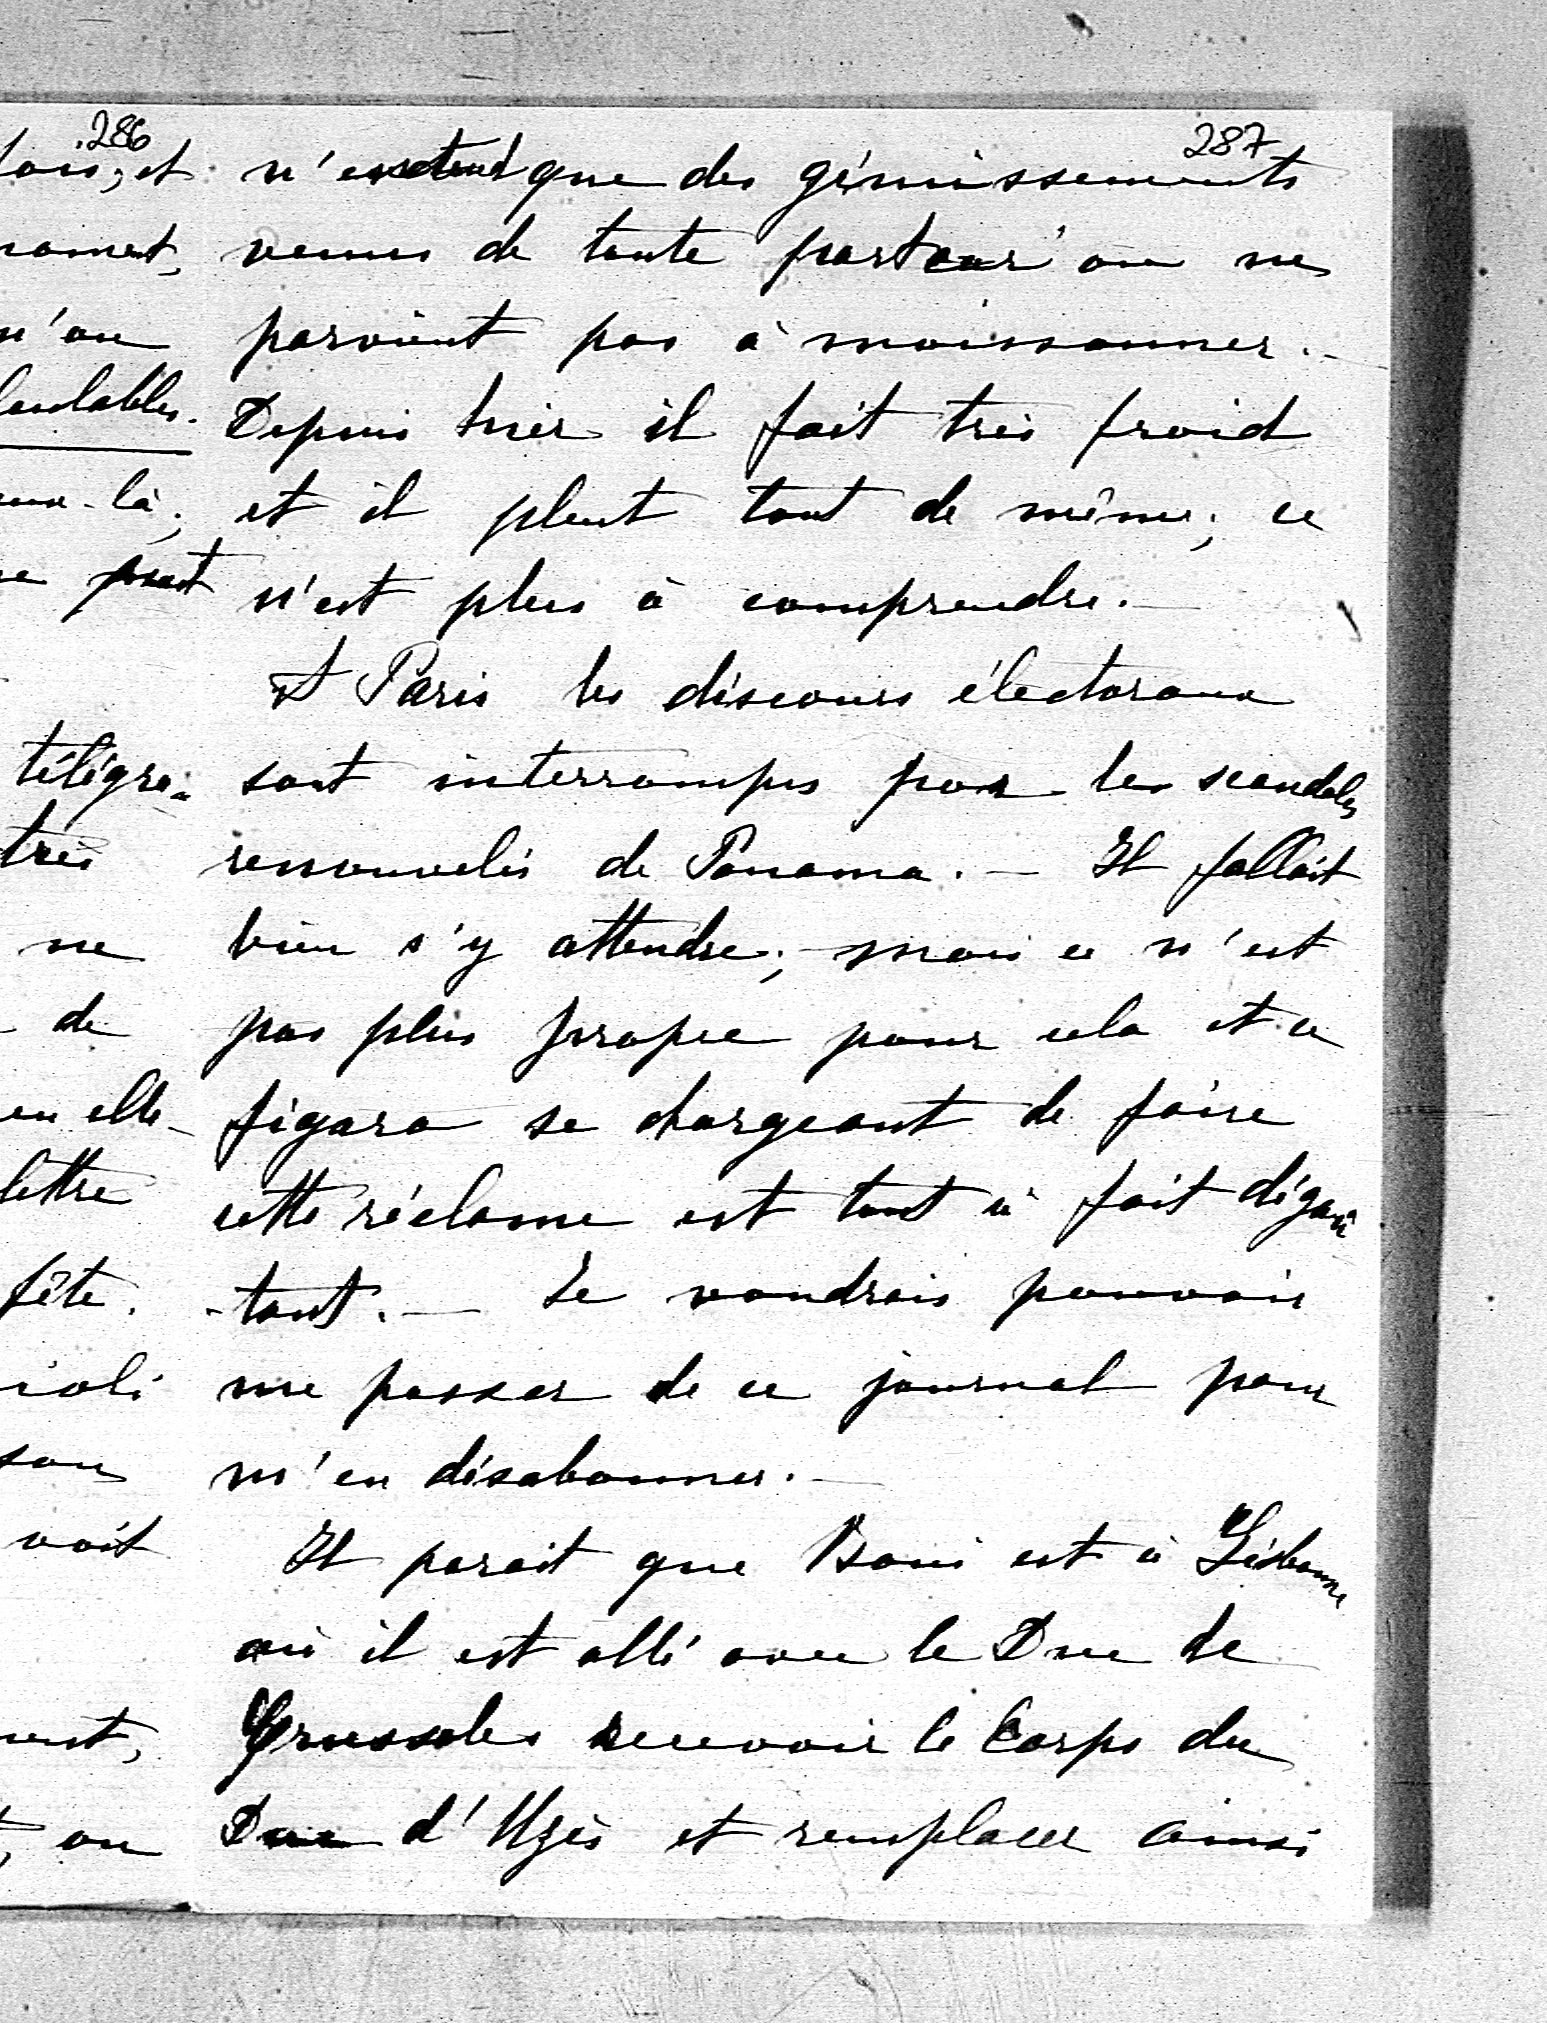 286
lois, et
promet,
qu'on
laudables.
eux-là;
ne peut
télégra-
très
ne
de
en elle-
lettre
fête.
joli
son
voit
ent,
t, on
287
n'entend que des gémissements
venus de toute part car on ne
parvient pas à moissonner. -
Depuis hier il fait très froid
et il pleut tout de même; ce
n'est plus à comprendre. -
A Paris les discours électoraux
sont interrompus par les scandales
renouvelés de Panama. - Il fallait
bien s'y attendre; mais ce n'est
pas plus propre pour cela et ce
figaro se chargeant de faire
cette réclame est tout à fait dégoû
-tant. - Je voudrais pouvoir
me passer de ce journal pour
m'en désabonner. -
Il parait que Boni est à Lisbonne
où il est allé avec le Duc de
Crussoles recevoir le Corps du
Duc d'Uzès et remplacer ainsi